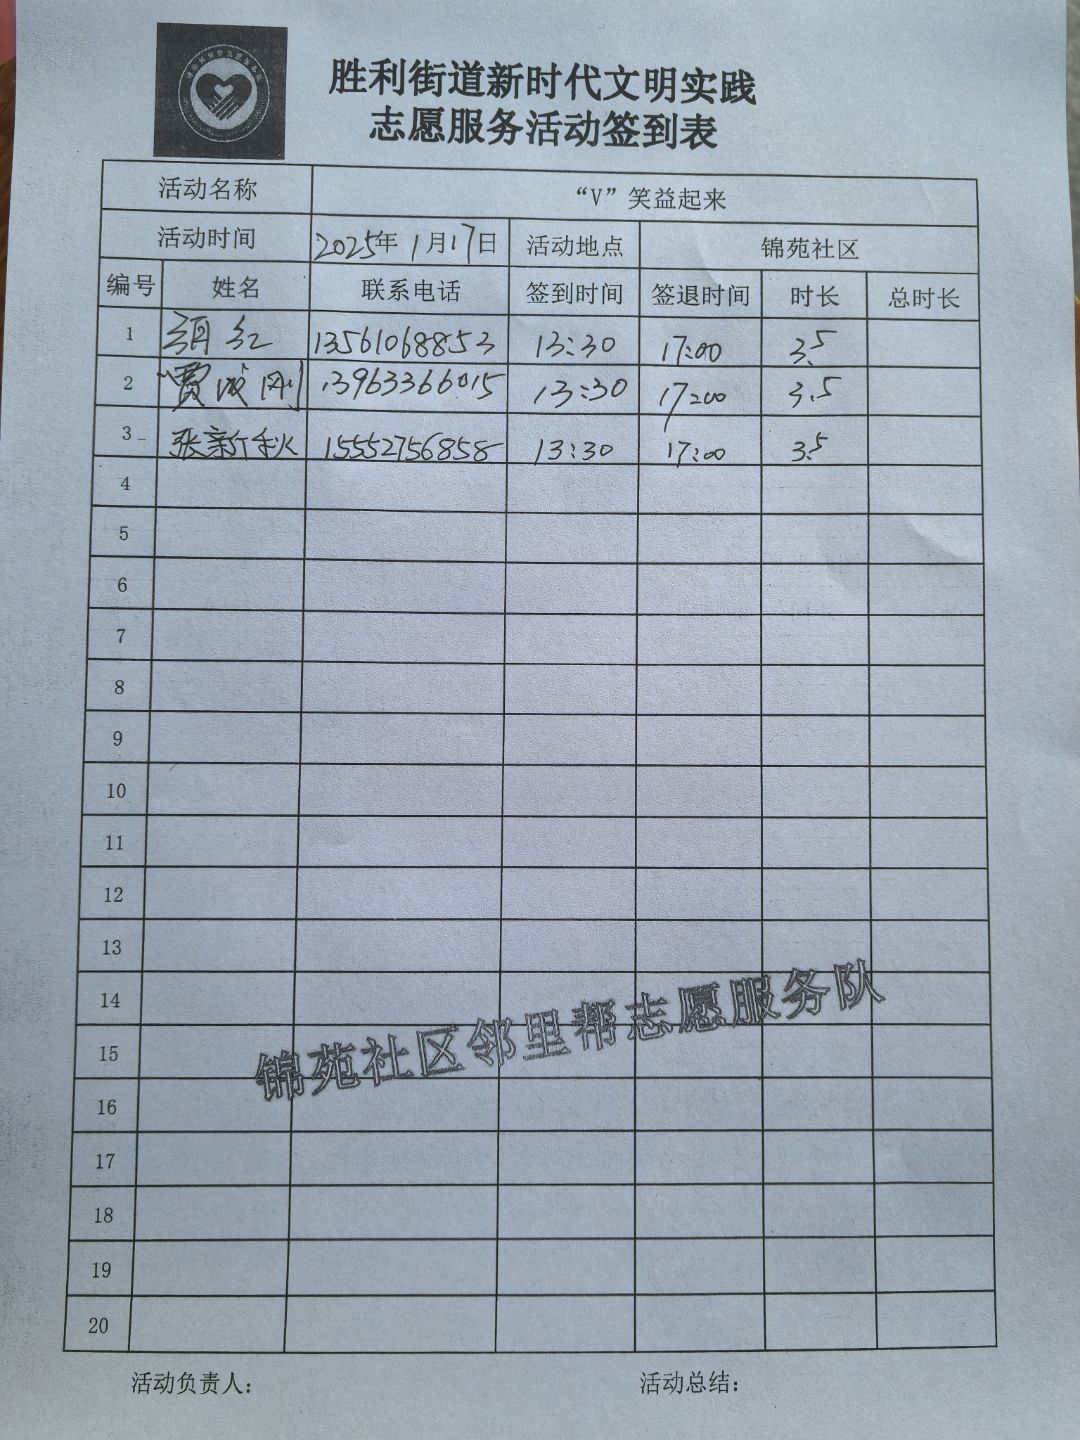 胜利街道新时代文明实践
志愿服务活动签到表
活动名称 “V”笑益起来
活动时间 2025年1月17日 活动地点 锦苑社区
编号 姓名 联系电话 签到时间 签退时间 时长 总时长
1 红 13561068853 13:30 17:00 3.5
2 贾成刚 13963366015 13:30 17:00 3.5
3 张新秋 15552756858 13:30 17:00 3.5
4
5
6
7
8
9
10
11
12
13
14
15
16
17
18
19
20
锦苑社区邻里帮志愿服务队
活动负责人： 活动总结：